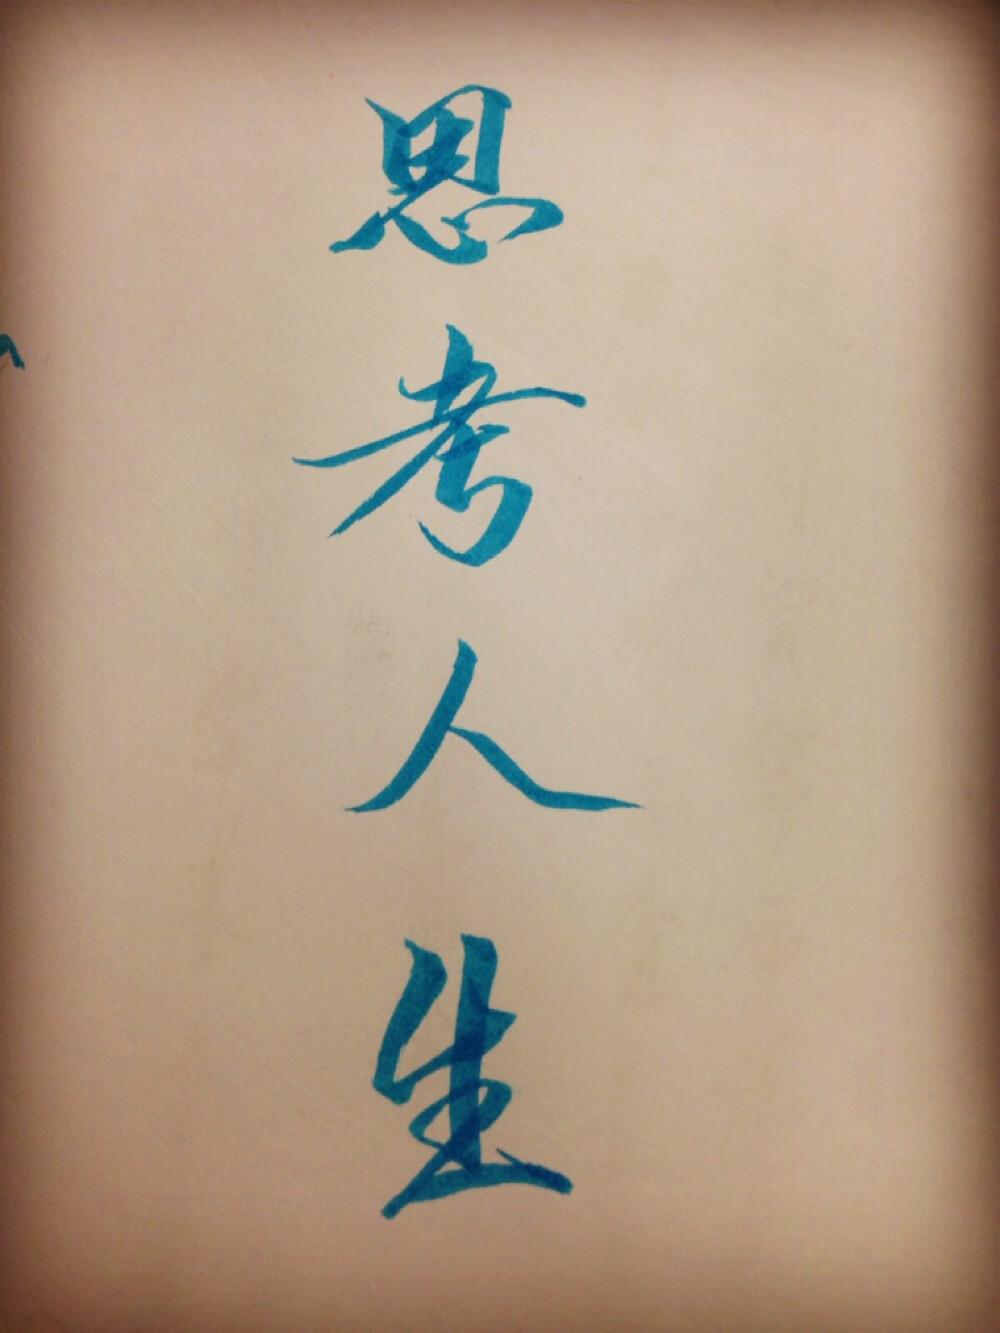 思考人生